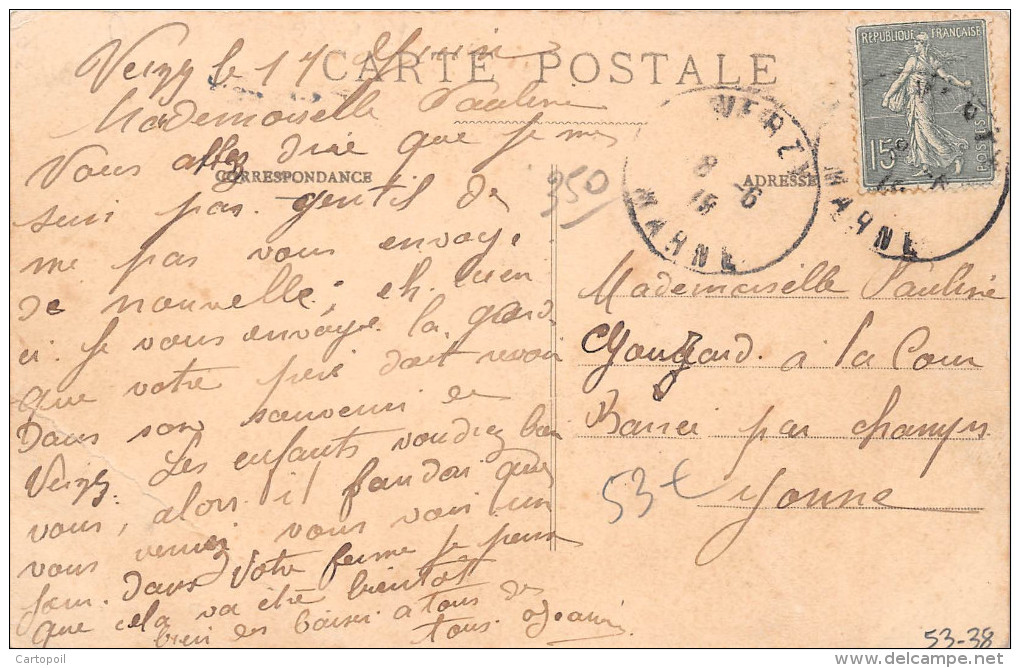 Verzy le 17 Juin
CARTE POSTALE
Mademoiselle Pauline
Vous allez dire que je me
CORRESPONDANCE
ADRESSE
suis pas gentil de
me pas vous envoye
de nouvelle; eh bien
ci. Je vous envoye la gard
que votre peis doit revoir
Dans son souvenir de
Verzy. Les enfants voudrez bien
vous, alors il faudar que
vous veniez vous voir un
jour. Dans votre ferme je pense
que cela va être bientot
bien des baisers a tous des
tous.
REPUBLIQUE FRANÇAISE
15c
POSTES
VERZY
8 -6
15
MARNE
VERZY
MARNE
950
Mademoiselle Pauline
à la Cour
Barrée par champs
Yonne
53 €
53-38
Cartopoil
www.delcampe.net